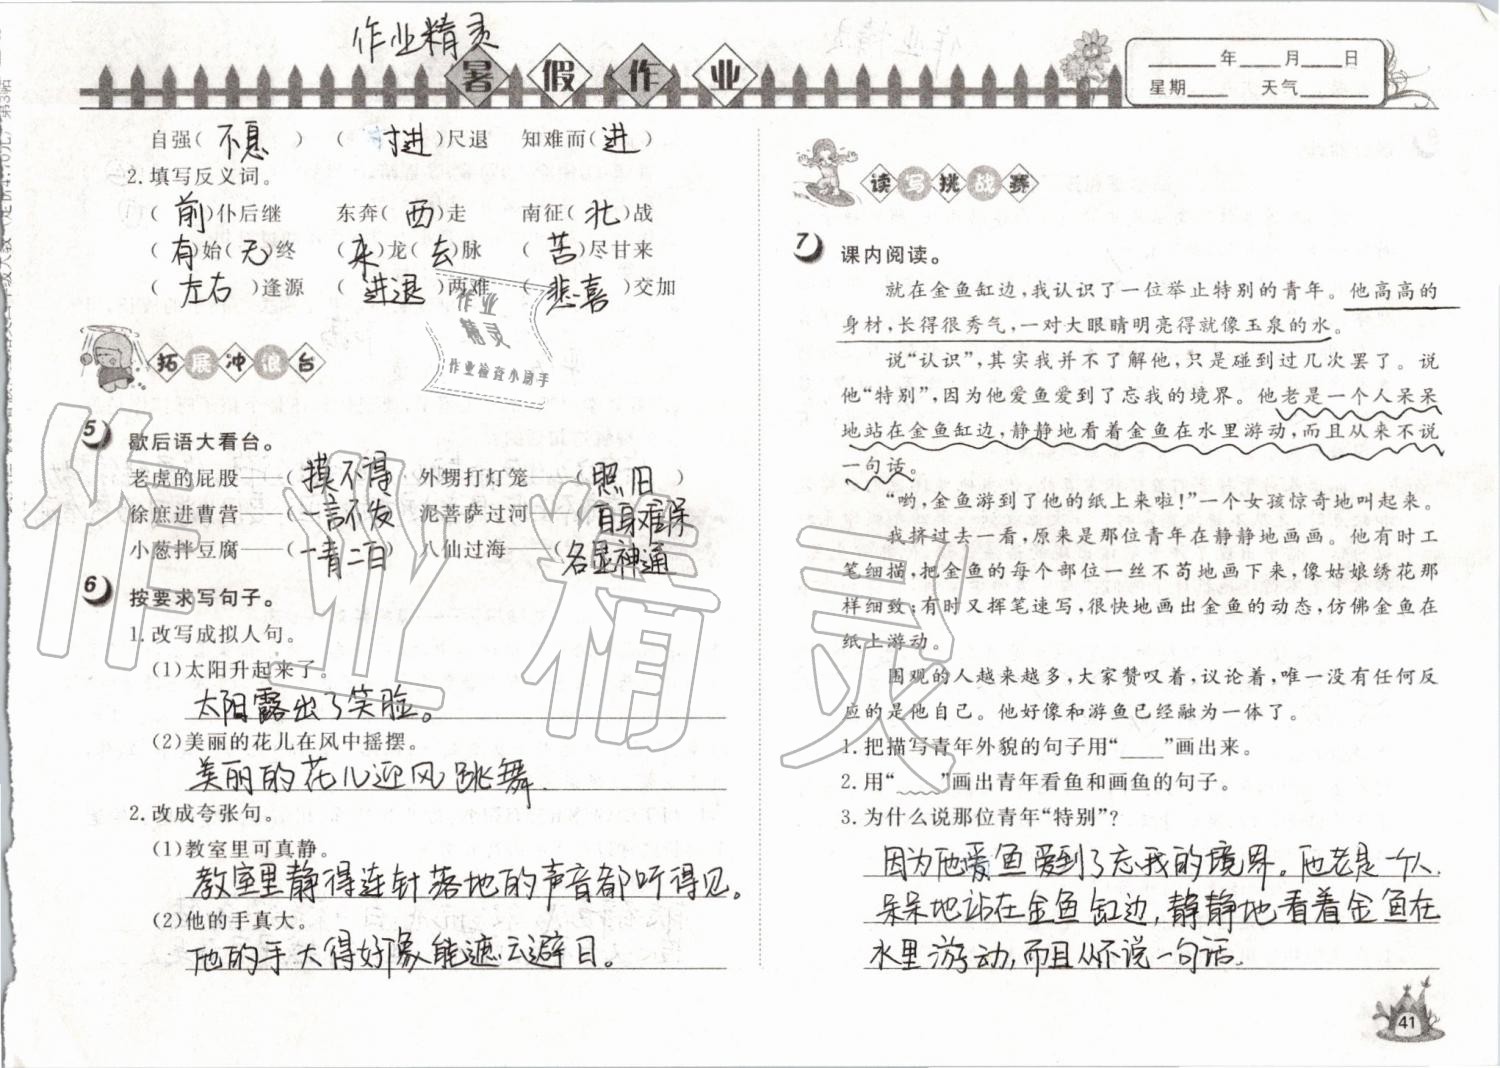 作业精灵
暑假作业
____年____月____日
星期____ 天气______
自强( 不息 ) ( 寸进 )尺退 知难而( 进 )
2.填写反义词。
( 前 )仆后继 东奔( 西 )走 南征( 北 )战
( 有 )始( 无 )终 ( 来 )龙( 去 )脉 ( 苦 )尽甘来
( 左右 )逢源 ( 进退 )两难 ( 悲喜 )交加
作业
精灵
作业检查小助手
拓展冲浪台
5 歇后语大看台。
老虎的屁股——( 摸不得 ) 外甥打灯笼——( 照旧 )
徐庶进曹营——( 一言不发 ) 泥菩萨过河——( 自身难保 )
小葱拌豆腐——( 一青二白 ) 八仙过海——( 各显神通 )
6 按要求写句子。
1.改写成拟人句。
(1)太阳升起来了。
太阳露出了笑脸。
(2)美丽的花儿在风中摇摆。
美丽的花儿迎风跳舞.
2.改成夸张句。
(1)教室里可真静。
教室里静得连针落地的声音都听得见。
(2)他的手真大。
他的手大得好象能遮云避日。
读写挑战赛
7 课内阅读。
就在金鱼缸边,我认识了一位举止特别的青年。他高高的
身材,长得很秀气,一对大眼睛明亮得就像玉泉的水。
说“认识”,其实我并不了解他,只是碰到过几次罢了。说
他“特别”,因为他爱鱼爱到了忘我的境界。他老是一个人呆呆
地站在金鱼缸边,静静地看着金鱼在水里游动,而且从来不说
一句话。
“哟,金鱼游到了他的纸上来啦!”一个女孩惊奇地叫起来。
我挤过去一看,原来是那位青年在静静地画画。他有时工
笔细描,把金鱼的每个部位一丝不苟地画下来,像姑娘绣花那
样细致;有时又挥笔速写,很快地画出金鱼的动态,仿佛金鱼在
纸上游动。
围观的人越来越多,大家赞叹着,议论着,唯一没有任何反
应的是他自己。他好像和游鱼已经融为一体了。
1.把描写青年外貌的句子用“____”画出来。
2.用“﹏﹏”画出青年看鱼和画鱼的句子。
3.为什么说那位青年“特别”?
因为他爱鱼爱到了忘我的境界。他老是一个人
呆呆地站在金鱼缸边,静静地看着金鱼在
水里游动,而且从不说一句话.
41
作业精灵